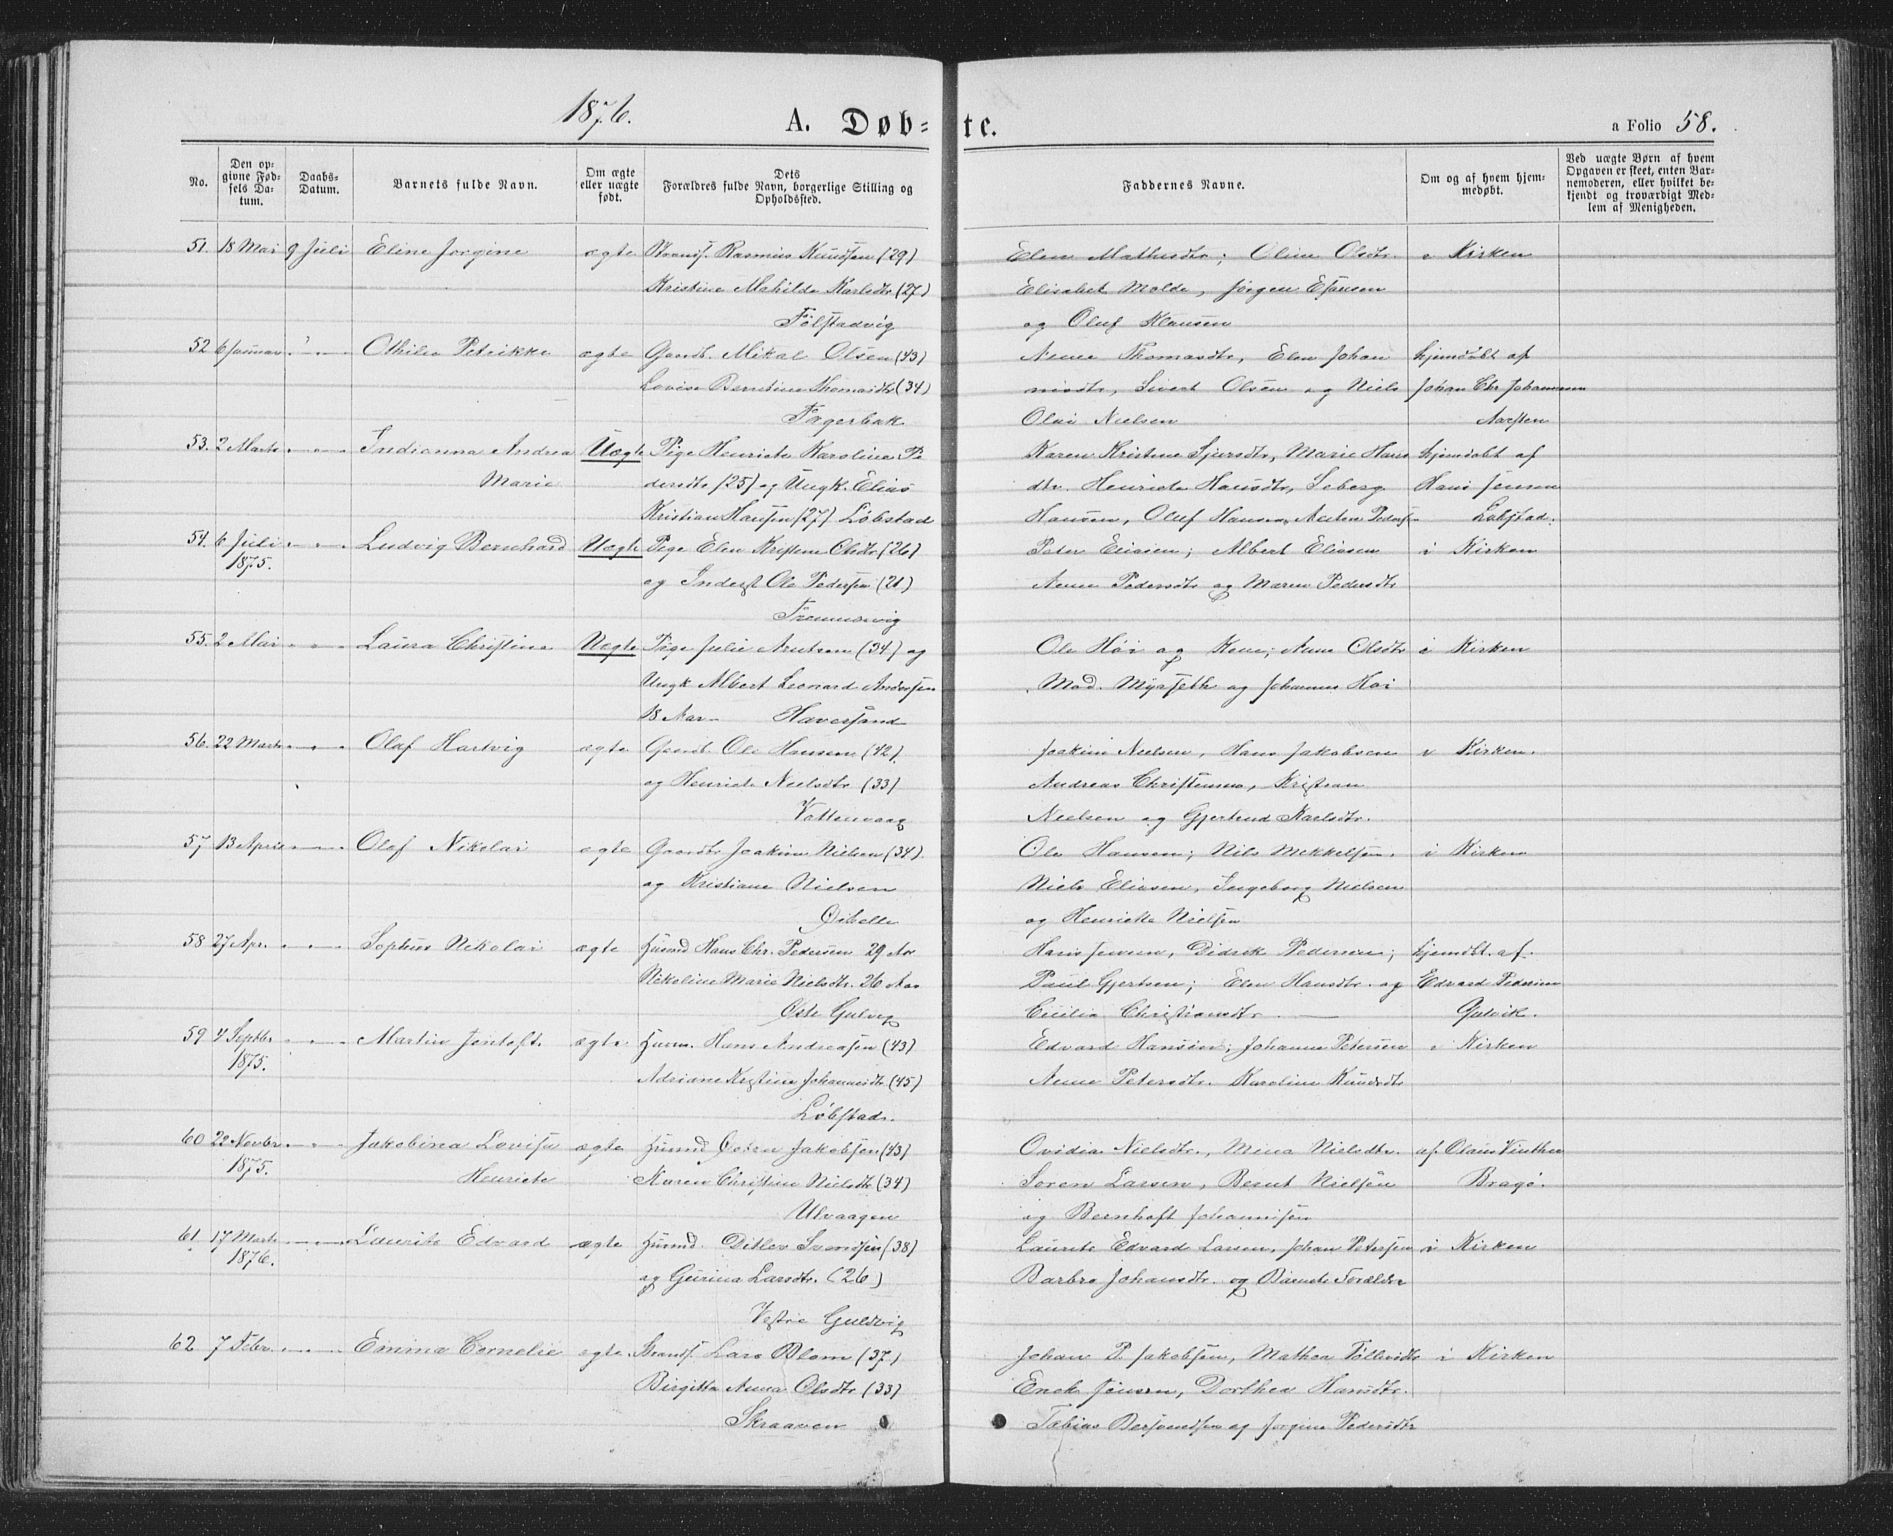 1876.
A. Døb=
te.
a Folio 58.
No.
Den op-
givne Fød-
sels Da-
tum.
Daabs-
Datum.
Barnets fulde Navn.
Om ægte
eller uægte
født.
Dets
Forældres fulde Navn, borgerlige Stilling og
Opholdssted.
Faddernes Navne.
Om og af hvem hjem-
medøbt.
Ved uægte Børn af hvem
Opgaven er skeet, enten Bar-
nemoderen, eller hvilket be-
kjendt og troværdigt Med-
lem af Menigheden.
51. 18 Mai 9 Juli Eline Jorgine ægte Strands. Rasmus Knudsen (29) Elen Mathisdtr; Oline Olsdtr. i Kirken
Kristine Mahilde Karlsdtr (27) Elisabet Molde, Jörgen
Fölstadvig og Oluf Klausen
52 6 Januar Othilie Petrikke ægte Gaardb. Mikal Olsen (43) Anne Thomasdtr, Elen Johan hjemdöbt af
Lovise Berntine Thomasdtr (34) nisdtr, Sivert Olsen og Niels Johan Chr Johannesen
Fagerbak Olai Nielsen Aarsten
53. 2 Marts Indianna Andrea Uægte Pige Henriete Karoline Pe Karen Kristine Sjursdtr, Marie Hans hjemdöbt af
Marie dersdtr (25) og Ungk. Elias dtr. Henriete Hansdtr, Seberg Hans Jensen
Kristian Hansen (27) Löbstad Hansen, Oluf Hansen, Pedersen Löbstad.
54. 6 Juli Ludvig Bernhard Uægte Pige Elen Kristine Olsdtr (26) Peter Eliasen; Albert Eliasen i Kirken
1875. og Inderst Ole Pedersen (21) Anne Pedersdtr og Maren Pedersdtr
55. 2 Mai Laura Christine Uægte Pige Julie Arntsen (34) og Ole Höi og Kone; Anne Olsdtr i Kirken
Ungk Albert Leonard Andersen Mad. Myrseth og Johannes Höi
18 Aar Haversand
56. 22 Marts Olaf Hartvig ægte Gaardb. Ole Hansen (42) Joakim Nielsen, Hans Jakobsen i Kirken.
og Henriete Nielsdtr (33) Andreas Christensen, Kristian
Vattenvaag Nielsen og Gjertrud Karlsdtr.
57 13 April Olaf Nikolai ægte Gaardbr Joakim Nielsen (34). Ole Hansen; Nils Mikkelsen. i Kirken
og Kristiane Nielsen Niels Eliasen, Ingeborg Nielsen
og Henrikke Nielsen
58 27 Apr. Sophus Nikolai ægte Husmd Hans Chr. Pedersen 29 Aar Hans Jensen, Didrik Pedersen; hjemdbt. af.
Nikoline Marie Nielsdtr. 26 Aar Paul Gjertsen; Elen Hansdtr. og Edvard Pedersen
Öste Gulvig Cicilia Christiansdtr. Gulvik.
59 4 Septbr Martin Jentoft. ægte Husm. Hans Andreasen (43) Edvard Hansen; Johanne Petersen i Kirken
1875. Adriane Kristine Johannisdtr (45) Anne Petersdtr. Karoline Knudsdtr
Löbstad.
60 22 Novbr Jakobina Lovise ægte Husmd Jakobsen (43) Ovidia Nielsdtr., Mina Nielsdtr. af. Olaus Vinther
1875. Henriete Karen Christine Nielsdtr (34) Soren Larsen, Bernt Nielsen Bragö.
Ulvaagen og Bernhoft Johannisen
61. 17 Marts Laurits Edvard ægte Husmd. Ditlev Svendsen (38) Laurits Edvard Larsen, Johan Petersen i Kirken
1876. og Gurina Larsdtr. (26) Barbro Johansdtr. og Barnets Forældre
Vestre Guldvig
62. 7 Febr. Emma Cornelie ægte Strands. Lars Blom (37) Johan P. Jakobsen, Mathea Tollevsdtr i Kirken
Birgitta Anna Olsdtr (33) Enok Jensen, Dorthea Hansdtr.
Skraaven Tobias Berjvendsen og Jorgine Pedersdtr